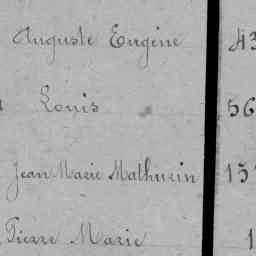 Auguste Eugène 43
Louis 56
Jean Marie Mathurin 15
Pierre Marie 1